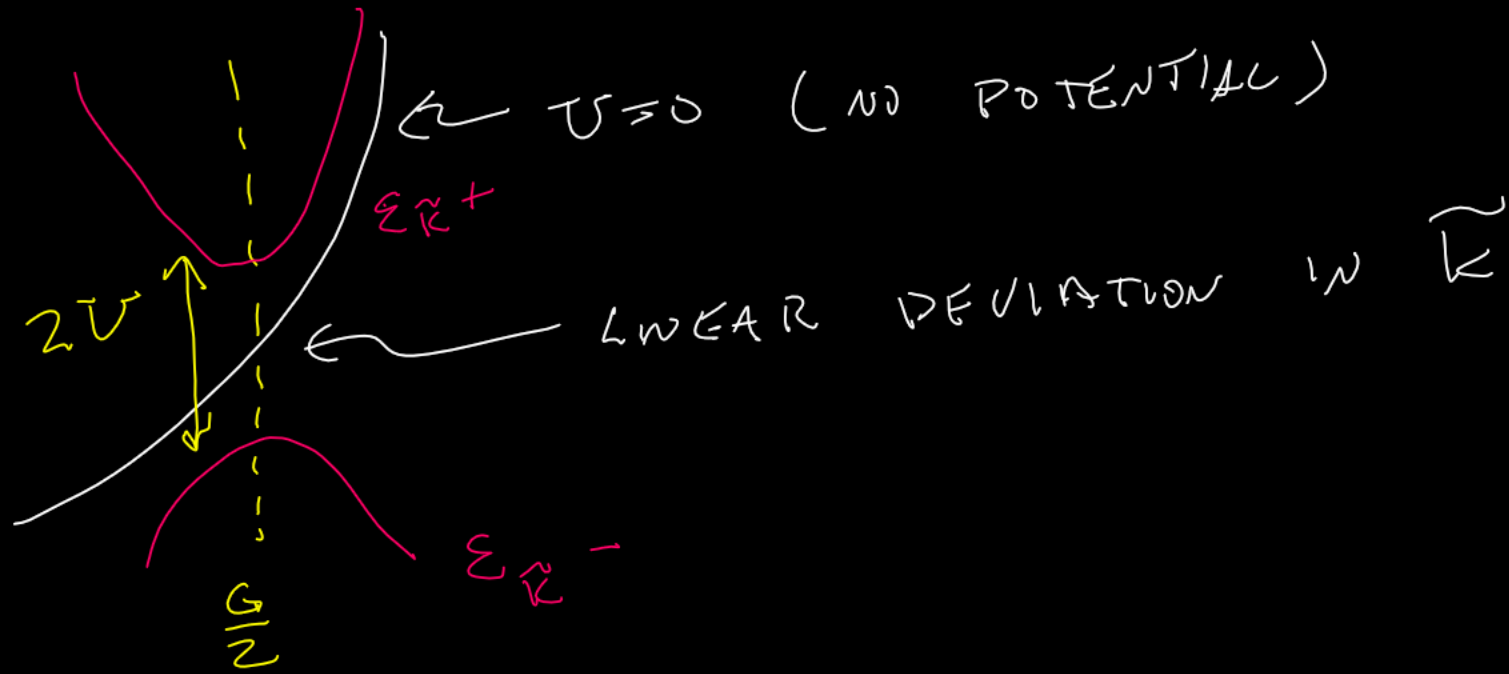 ← U=0 (NO POTENTIAL)
ε_k̃ +
2U
← LINEAR DEVIATION IN k̃
ε_k̃ -
G/2